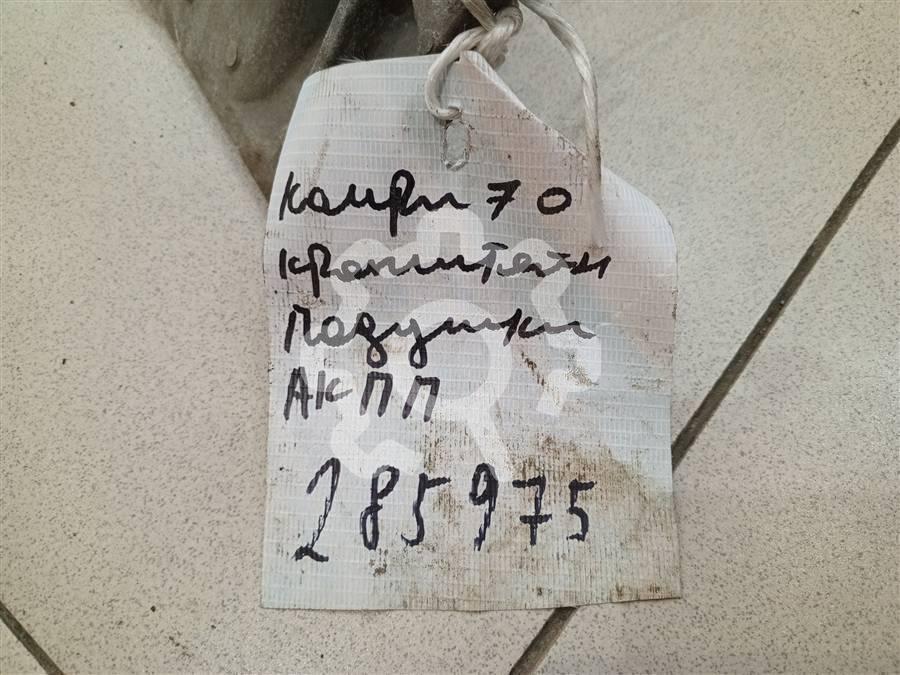 Камри 70
кронштейн
Подушки
АКПП
285975